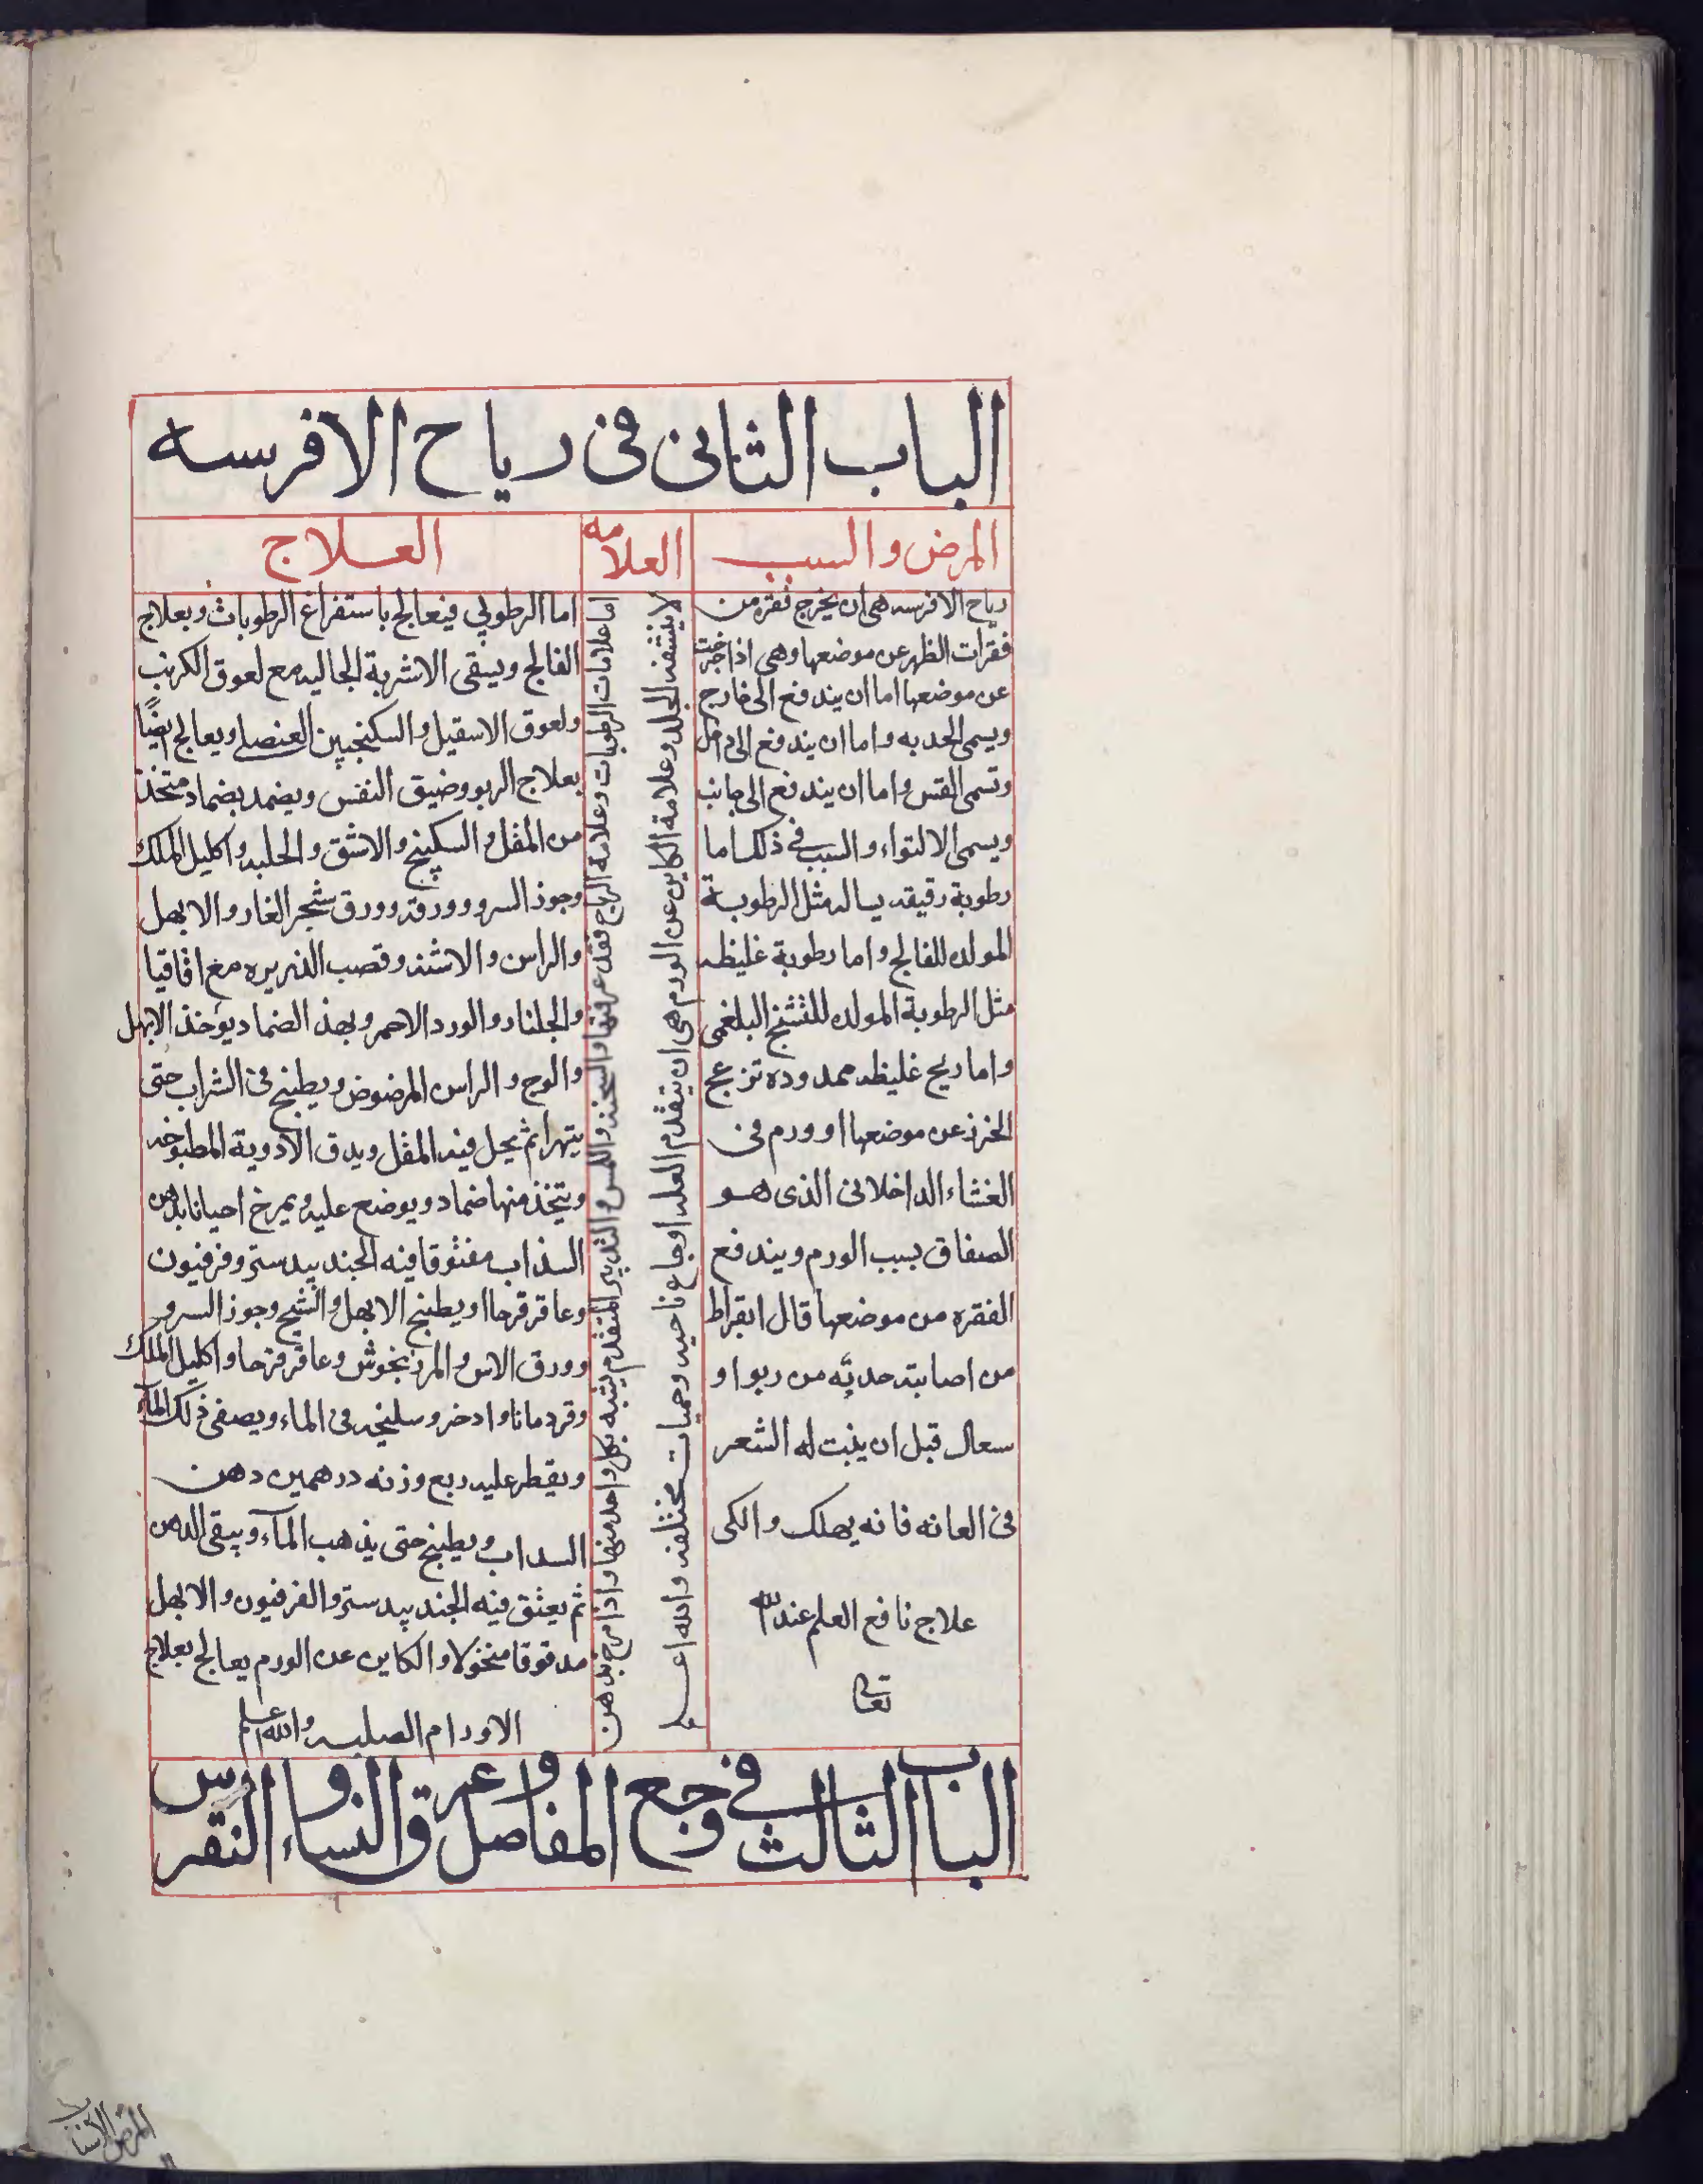 الباب الثانى فى رياح الافرسه
المرض والسبب
العلامه
العلاج
رياح الافرسه هى ان يخرج فقره من
فقرات الظهر عن موضعها وهى اذا خرجت
عن موضعها اما ان يندفع الى خارج
ويسمى الحدبه واما ان يندفع الى داخل
وتسمى القس واما ان يندفع الى جانب
ويسمى الالتواء والسبب فى ذلك اما
رطوبة رقيقه يساله مثل الرطوبة
المولده للفالج واما رطوبة غليظه
مثل الرطوبة المولده للتشنج البلغمى
واما ريح غليظه ممدوده تزعج
الخرز عن موضعها او ورم فى
الغشاء الداخلانى الذى هو
الصفاق بسبب الورم ويندفع
الفقره من موضعها قال ابقراط
من اصابته حدبه من ربو او
سعال قبل ان ينبت له الشعر
فى العانه فانه يهلك والكى
علاج نافع العلم عند الله
تعالى
اما علامات الرطوبات وعلامة الرياح فقد عرفتها والسحنه واللمس والتدبير المتقدم يشبه بكل واحد منها واذا مرخ بدهن
لا ينشفه الجلد وعلامة الكاين عن الورم هى ان يتقدم العله اوجاع ناحيه وحميات مختلفه والله اعلم
اما الرطوبي فيعالج باستفراغ الرطوبات وبعلاج
الفالج ويسقى الاشربة الجاليه مع لعوق الكرنب
ولعوق الاسقيل والسكنجبين العنصلى ويعالج ايضًا
بعلاج الربو وضيق النفس ويضمد بضماد متخذ
من المقل والسكبينج والاشق والحلبه واكليل الملك
وجوز السرو وورقه وورق شجر الغار والابهل
والراسن والاشنه وقصب الذريره مع اقاقيا
والجلنار والورد الاحمر وبهذ الضماد يؤخذ الابهل
والوج والراسن المرضوض ويطبخ فى الشراب حتى
يتهرا ثم يحل فيه المقل ويدق الادوية المطبوخه
ويتخذ منها ضماد ويوضع عليه ويمرخ احيانا بدهن
السذاب مفتوقا فيه الجندبيدستر وفرفيون
وعاقرقرحا او يطبخ الابهل والشيح وجوز السرو
وورق الاس والمرزنجوش وعاقرقرحا واكليل الملك
وقردمانا وادخر وسليخه فى الماء ويصفى ذلك المآء
ويقطر عليه ربع وزنه درهمين دهن
السداب ويطبخ حتى يذهب المآء ويبقى الدهن
ثم يعتق فيه الجندبيدستر والفرفيون والابهل
مدقوقا منخولا والكاين عن الورم يعالج بعلاج
الاورام الصلبه والله اعلم
الباب الثالث فى وجع المفاصل وعرق النساء والنقرس